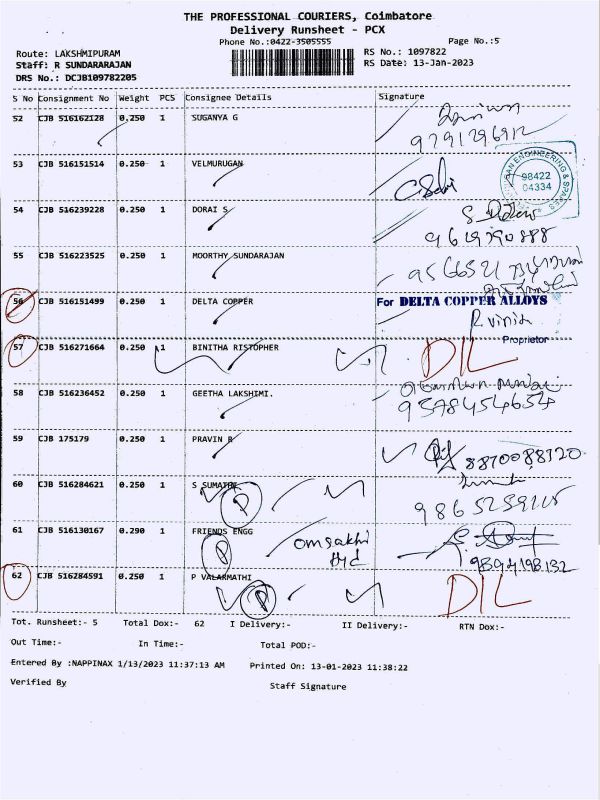 THE PROFESSIONAL COURIERS, Coimbatore
Delivery Runsheet - PCX
Phone No.:0422-3505555 Page No.:5
Route: LAKSHMIPURAM RS No.: 1097822
Staff: R SUNDARARAJAN RS Date: 13-Jan-2023
DRS No.: DCJB109782205
S No Consignment No Weight PCS Consignee Details Signature
52 CJB 516162128 0.250 1 SUGANYA G
9791296912
53 CJB 516151514 0.250 1 VELMURUGAN
ENGINEERING & SPARES
98422
04334
54 CJB 516239228 0.250 1 DORAI S
9619790888
55 CJB 516223525 0.250 1 MOORTHY SUNDARAJAN
56 CJB 516151499 0.250 1 DELTA COPPER For DELTA COPPER ALLOYS
Proprietor
57 CJB 516271664 0.250 1 BINITHA RISTOPHER DIL
58 CJB 516236452 0.250 1 GEETHA LAKSHIMI.
9578454654
59 CJB 175179 0.250 1 PRAVIN R
8870088320
60 CJB 516284621 0.250 1 S SUMATHI
P
61 CJB 516130167 0.290 1 FRIENDS ENGG
P omsakthi
9894198132
62 CJB 516284591 0.250 1 P VALARMATHI DIL
P
Tot. Runsheet:- 5 Total Dox:- 62 I Delivery:- II Delivery:- RTN Dox:-
Out Time:- In Time:- Total POD:-
Entered By :NAPPINAX 1/13/2023 11:37:13 AM Printed On: 13-01-2023 11:38:22
Verified By Staff Signature